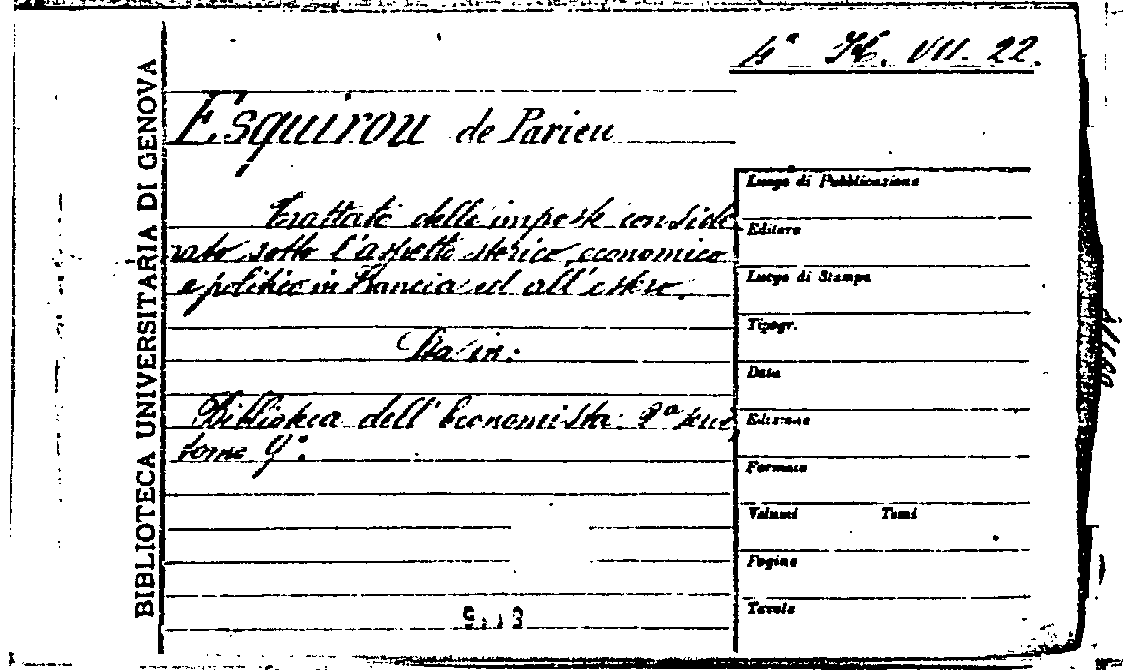 4ª H. VII. 22.
BIBLIOTECA UNIVERSITARIA DI GENOVA
Esquirou de Parieu
Trattato delle imposte conside
rato sotto l'aspetto storico, economico
e politico in Francia ed all'estero.
Sta in:
Biblioteca dell'Economista. 2ª serie,
tomo 9º.
Luogo di Pubblicazione
Editore
Luogo di Stampa
Tipogr.
Data
Edizione
Formato
Volumi Tomi
Pagine
Tavole